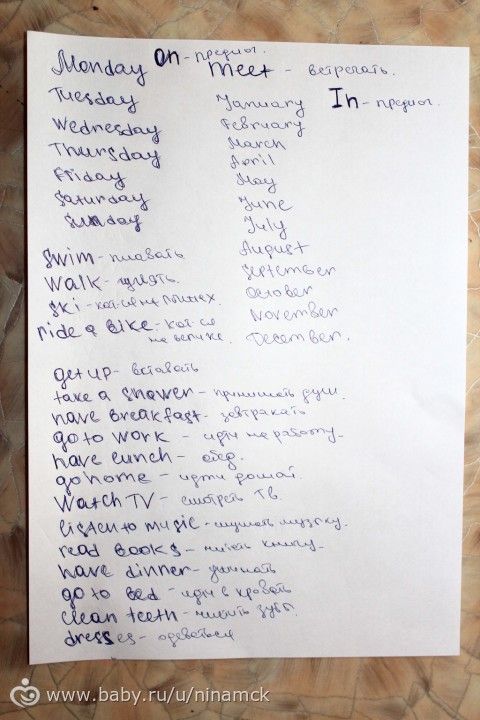 Monday on - предлог.
meet - встречать.
Tuesday
Wednesday
Thursday
Friday
Saturday
Sunday
January In - предлог.
February
March
April
May
June
July
August
September
October
November
December.
swim - плавать
walk - гулять.
ski - кат-ся на лыжах.
ride a bike - кат-ся на велике.
get up - вставать
take a shower - принимать душ.
have breakfast - завтракать
go to work - идти на работу
have lunch - обед.
go home - идти домой.
Watch TV - смотреть ТВ.
listen to music - слушать музыку.
read books - читать книгу
have dinner - ужинать
go to bed - идти в кровать
clean teeth - чистить зубы.
dresses - одеваться
www.baby.ru/u/ninamck